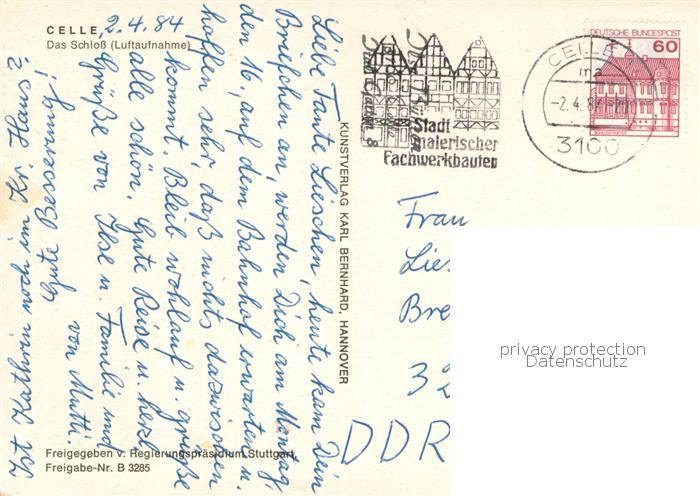 CELLE, 2.4.84
Das Schloß (Luftaufnahme)
Liebe Tante Lieschen, heute kam Dein
Briefchen an, werden Dich am Montag,
den 16. auf dem Bahnhof erwarten u.
hoffen sehr daß nichts dazwischen
kommt. Bleib wohlauf u. grüße
alle schön. Gute Reise u. herzl.
Grüße von Ilse u. Familie und
von Mutti.
gute Besserung!
Ist Joachim noch im Kr. Haus?
Freigegeben v. Regierungspräsidium Stuttgart,
Freigabe-Nr. B 3285
KUNSTVERLAG KARL BERNHARD, HANNOVER
Stadt
malerischer
Fachwerkbauten
CELLE
ma
-2.4.84
3100
DEUTSCHE BUNDESPOST
60
Frau
Lies
Bre
32
DDR
privacy protection
Datenschutz